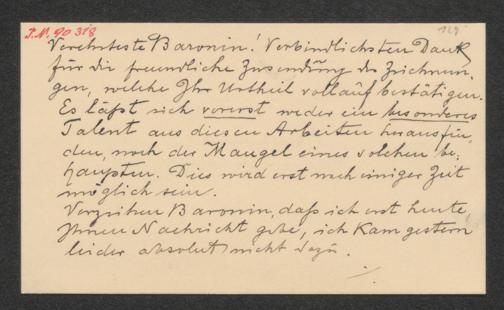 I.N. 90318
129
Verehrteste Baronin! Verbindlichsten Dank
für die freundliche Zusendung der Zeichnun-
gen, welche Ihr Urtheil vollauf bestätigen.
Es läßt sich vorerst weder ein besonderes
Talent aus diesen Arbeiten herausfin-
den, noch der Mangel eines solchen be-
haupten. Dies wird erst nach einiger Zeit
möglich sein.
Verzeihen Baronin, daß ich erst heute
Ihnen Nachricht gebe, ich kam gestern
leider absolut nicht dazu.